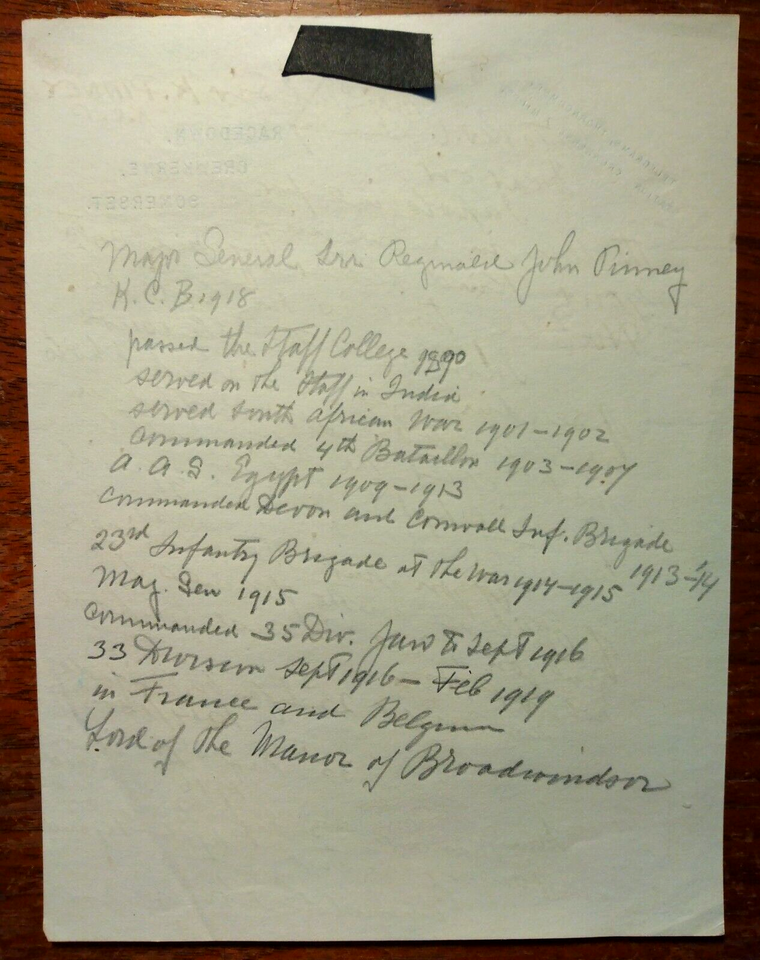 Major General Sir Reginald John Pinney
K.C.B 1918
passed the Staff College 1890
served on the Staff in India
served South African War 1901-1902
commanded 4th Bataillon 1903-1907
A.A.G. Egypt 1909-1913
commanded Devon and Cornwall Inf. Brigade
1913-14
23rd Infantry Brigade at the War 1914-1915
Maj. Gen 1915
commanded 35 Div. Jan to Sept 1916
33 Division Sept 1916 - Feb 1919
in France and Belgium
Lord of the Manor of Broadwindsor
RACEDOWN,
CREWKERNE,
SOMERSET.